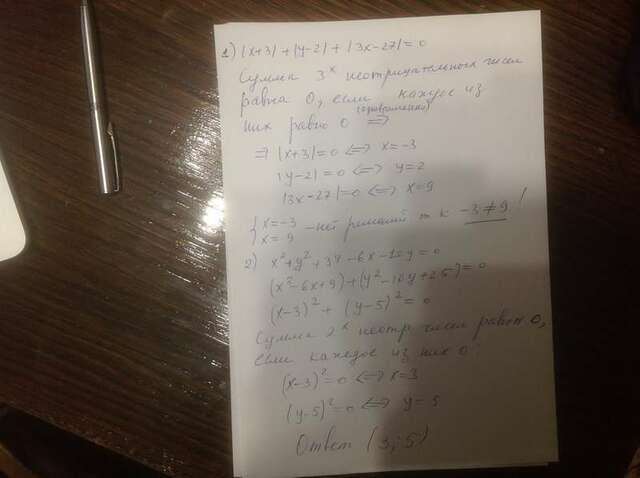 1) |x+3| + |y-2| + |3x-27| = 0
Сумма 3х неотрицательных чисел
равна 0, если каждое из
(одновременно)
них равно 0 =>
=> |x+3| = 0 <=> x = -3
|y-2| = 0 <=> y = 2
|3x-27| = 0 <=> x = 9
{ x = -3
x = 9 - нет решений т к -3 ≠ 9 !
2) x² + y² + 34 - 6x - 10y = 0
(x² - 6x + 9) + (y² - 10y + 25) = 0
(x-3)² + (y-5)² = 0
Сумма 2х неотр чисел равна 0,
если каждое из них 0.
(x-3)² = 0 <=> x = 3
(y-5)² = 0 <=> y = 5
Ответ (3; 5)